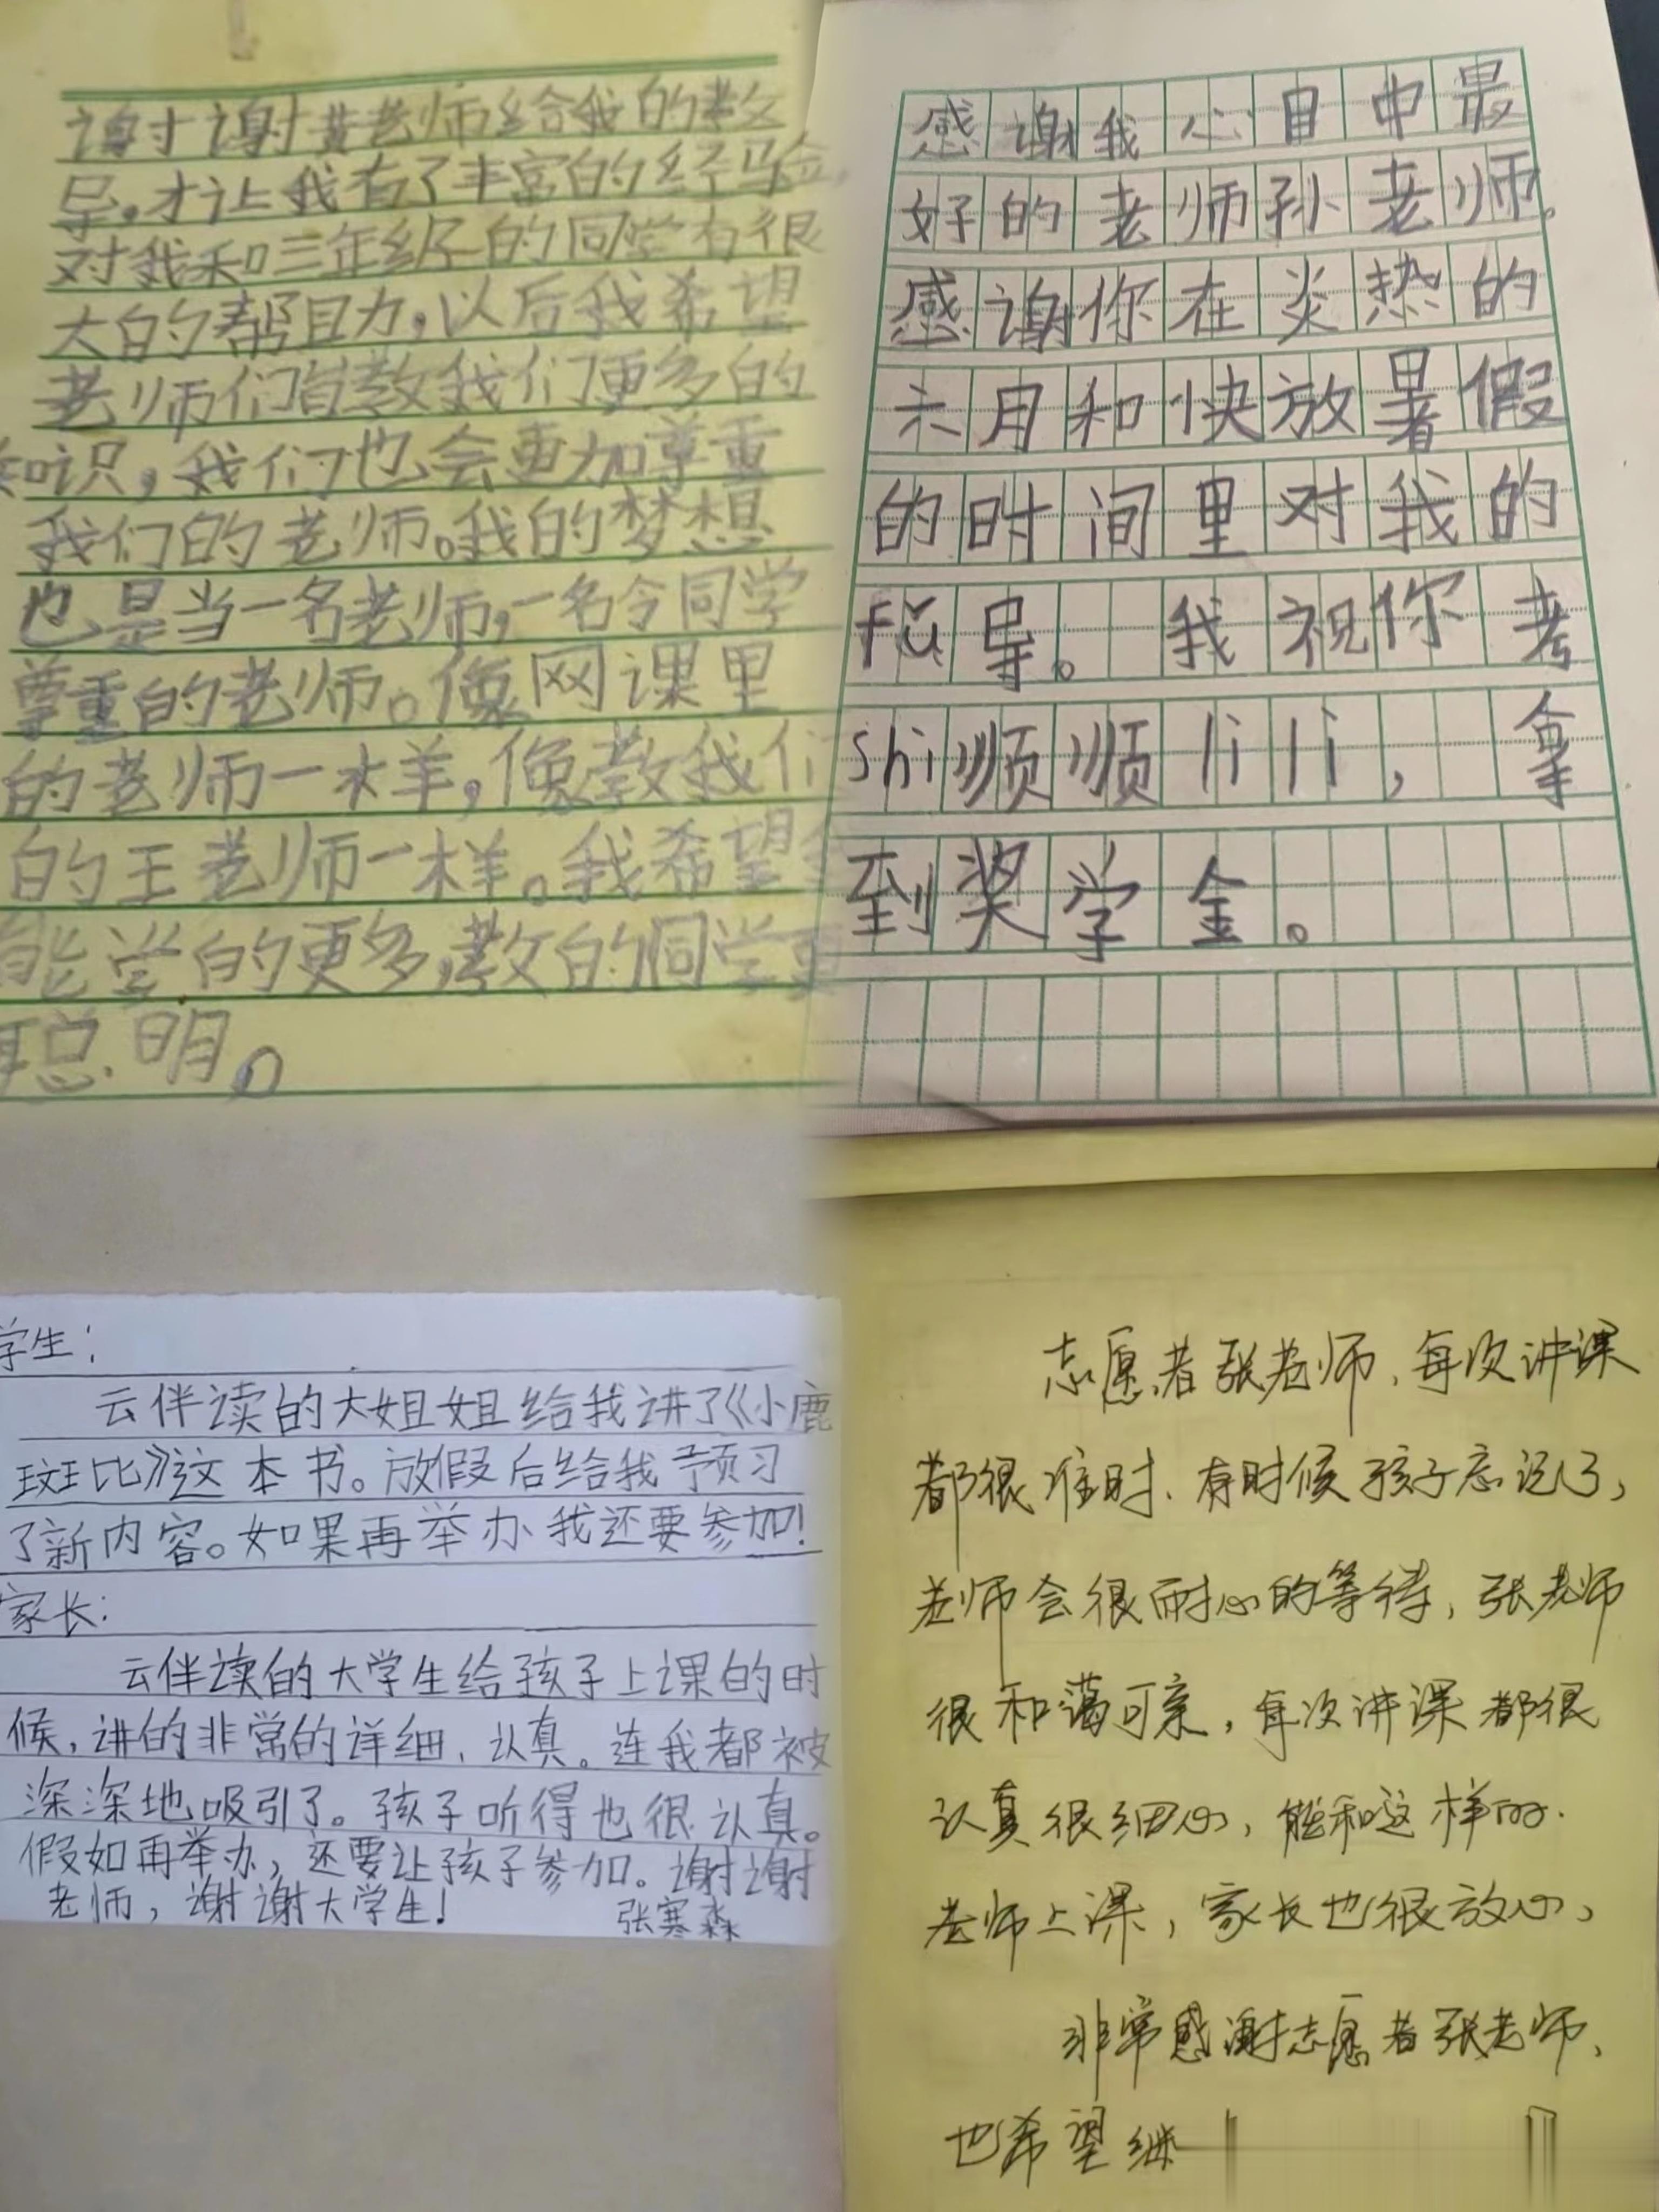 谢谢黄老师给我的教
导。才让我有了丰富的经验,
对我和三年级的同学有很
大的帮助,以后我希望
老师们皆教我们更多的
知识,我们也会更加尊重
我们的老师。我的梦想
也是当一名老师,一名令同学
尊重的老师。像网课里
的老师一样,像教我们
的王老师一样。我希望
能学的更多,教的同学更
聪明。
感谢我心目中最
好的老师孙老师。
感谢你在炎热的
六月和快放暑假
的时间里对我的
fǔ导。 我祝你考
shi顺顺lili, 拿
到奖学金。
学生:
云伴读的大姐姐给我讲了《小鹿
斑比》这本书。放假后给我预习
了新内容。如果再举办我还要参加!
家长:
云伴读的大学生给孩子上课的时
候,讲的非常的详细、认真。连我都被
深深地吸引了。孩子听得也很认真。
假如再举办,还要让孩子参加。谢谢
老师,谢谢大学生!
张寒淼
志愿者张老师、每次讲课
都很准时、有时候孩子忘记了,
老师会很耐心的等待,张老师
很和蔼可亲,每次讲课都很
认真很细心,能和这样的.
老师上课,家长也很放心、
非常感谢志愿者张老师、
也希望继